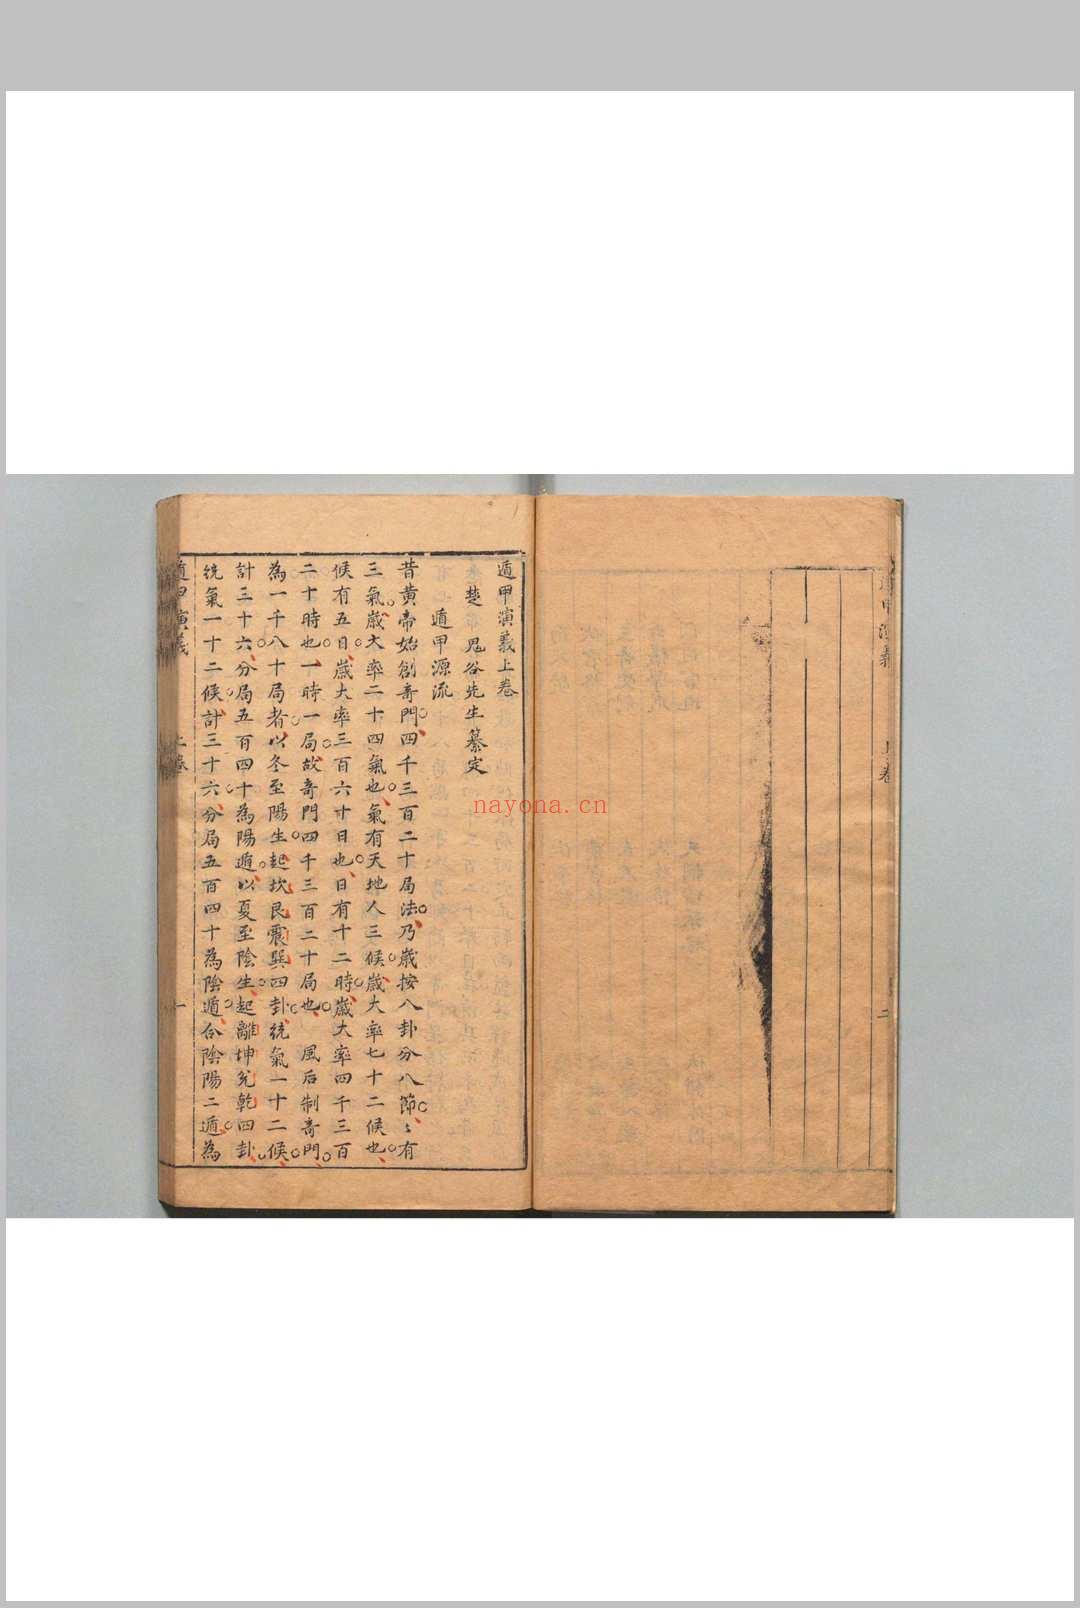 遁甲演義
上卷
二
遁甲演義上卷
楚 鬼谷先生纂定
遁甲源流
昔黃帝始創奇門四千三百二十局法乃歲按八卦分八節〻有
三氣歲大率二十四氣也氣有天地人三候歲大率七十二候也
候有五日歲大率三百六十日也日有十二時歲大率四千三百
二十時也一時一局故奇門四千三百二十局也 風后制奇門
為一千八十局者以冬至陽生起坎艮震巽四卦統氣一十二候
計三十六分局五百四十為陽遁以夏至陰生起離坤兌乾四卦
統氣一十二候計三十六分局五百四十為陰遁合陰陽二遁為
遁甲演義
上卷
一
nayona.cn